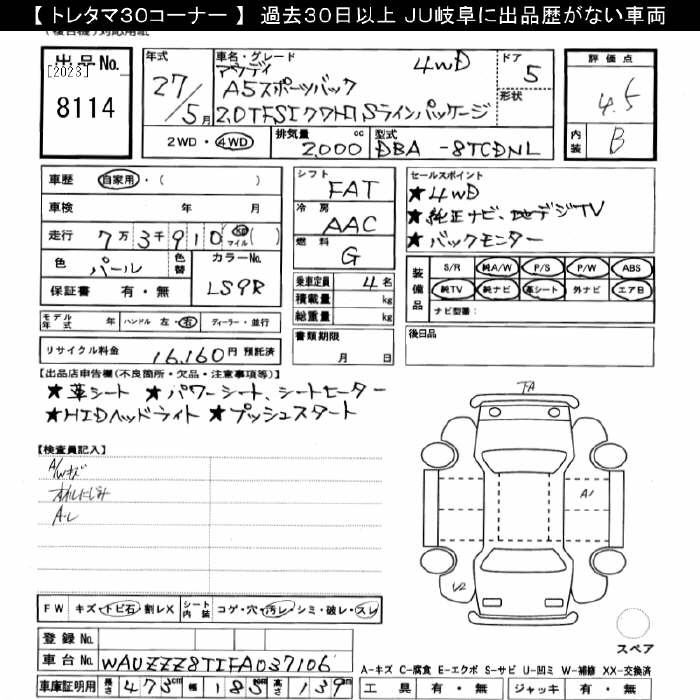 【 トレタマ30コーナー 】 過去30日以上 JU岐阜に出品歴がない車両
出品No.
[2023]
8114
年式
27/5月
車名・グレード
アウディ 4WD
A5スポーツバック
2.0TFSIクワトロ Sラインパッケージ
ドア
5
形状
評価点
4.5
内装
B
2WD・4WD
排気量
2,000 cc
型式
DBA -8TCDNL
車歴 自家用・( )
車検 年 月
走行 7万3千910 km マイル ( )
色 パール 色替
カラーNo.
LS9R
保証書 有・無
シフト
FAT
冷房
AAC
燃料
G
乗車定員 4名
積載量 kg
総重量 kg
書類期限
月 日
セールスポイント
★4WD
★純正ナビ、地デジTV
★バックモニター
装備品
S/R 純A/W P/S P/W ABS
純TV 純ナビ 革シート 外ナビ エアB
ナビ型番:
後日品
モデル年式 年 ハンドル 左・右 ディーラー・並行
リサイクル料金 16,160円 預託済
【出品店申告欄(不良箇所・欠品・注意事項等)】
★革シート ★パワーシート、シートヒーター
★HIDヘッドライト ★プッシュスタート
【検査員記入】
A/Wキズ
オイルにじみ
A・レ
A1
U2
FW キズ・トビ石・割レX
シート内装 コゲ・穴・汚レ・シミ・破レ・スレ
登録No.
車台No. WAUZZZ8T1FA037106
車庫証明用 長さ 473cm 幅 185cm 高さ 139cm
スペア
A-キズ C-腐食 E-エクボ S-サビ U-凹ミ W-補修 XX-交換済
工具 有・無 ジャッキ 有・無